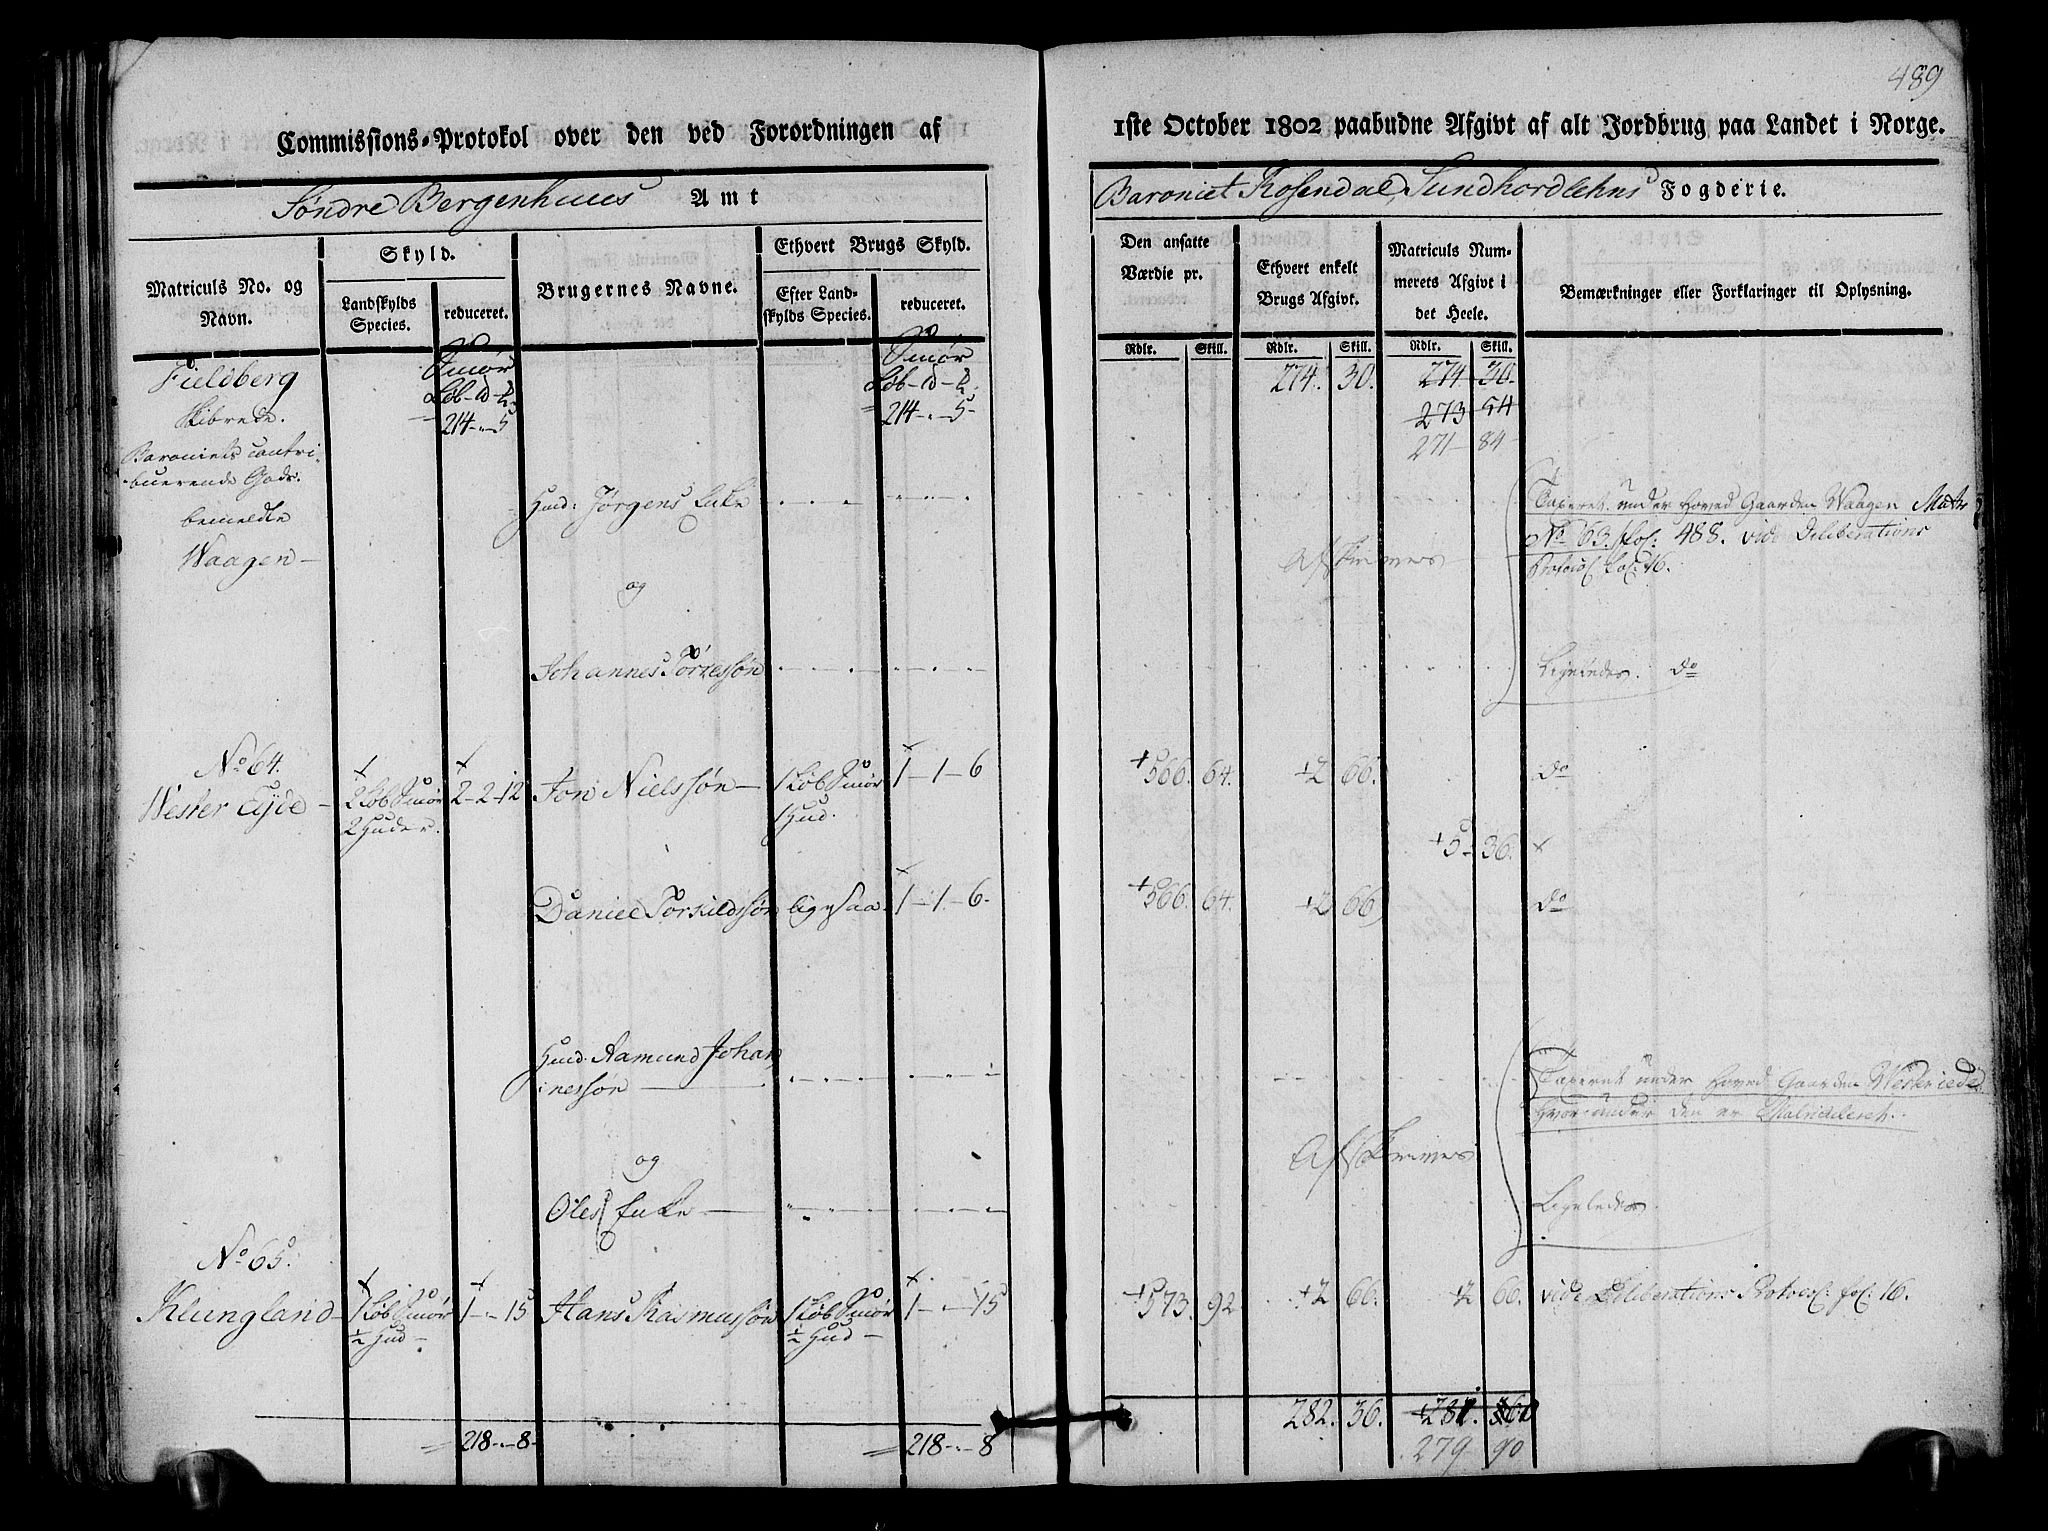 489
Commissions-Protokol over den ved Forordningen af
1ste October 1802 paabudne Afgivt af alt Jordbrug paa Landet i Norge.
Søndre Bergenhuus Amt
Baroniet Rosendal, Sundhordlehns Fogderie.
Matriculs No. og Navn.
Skyld.
Landskylds Species.
reduceret.
Brugernes Navne.
Ethvert Brugs Skyld.
Efter Landskylds Species.
reduceret.
Den ansatte Værdie pr.
Ethvert enkelt Brugs Afgivt.
Matriculs Nummerets Afgivt i det Heele.
Bemærkninger eller Forklaringer til Oplysning.
Rdlr. Skill. Rdlr. Skill. Rdlr. Skill.
Fieldberg
Skibrede.
Baroniets contri-
buerende Gods.
bemeldte
Waagen
Smør
Løb
214 - 5
Smør
Løb
214 - 5
274. 30. 274 30
273 54
271 84
Huusd: Jørgens Enke
Taxeret under Hoved Gaarden Waagen Matr
No 63. fol: 488. vide Deliberations
Protocol fol: 16.
Afskrives
og
Johannes Tørressøn
Ligeledes. do
No 64.
Wester Eyde 2 Løb Smør 2-2-12 Jon Nielssøn 1 Løb Smør 1-1-6 566. 64. 2 66. do
2 Huder. 1 Hud.
5 36.
Daniel Torkildssøn ligesaa 1-1-6. 566. 64. 2 66 do
Huusd. Aamund Johan
nessøn
Taxeret under Hoved Gaarden
Hvorunder den er
Afskrives
og
Oles Enke
Ligeledes.
No 65.
Klungland 1 Løb Smør 1 - 15 Hans Rasmussøn 1 Løb Smør 1 - 15 573. 92 2 66. 2 66. vide Deliberations Protocol: fol: 16.
1/2 Hud 1/2 Hud
282. 36.
218 - 8 218 - 8 279 90